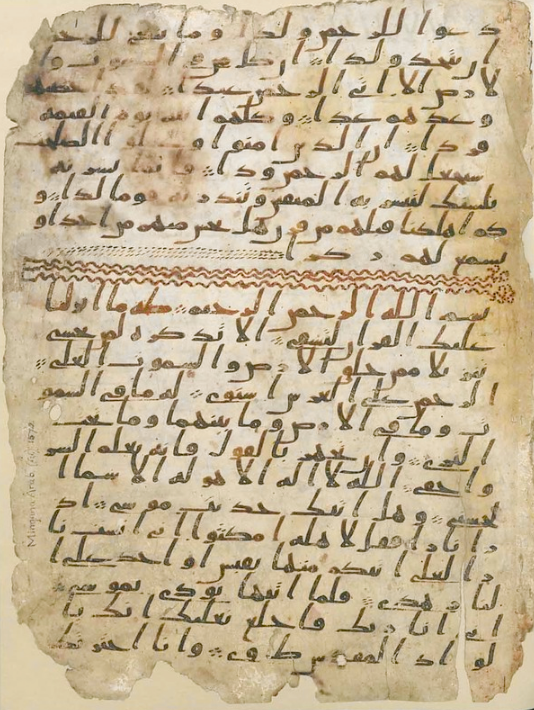 دعوا للرحمن ولدا وما ينبغي للرحمن
ان يتخذ ولدا ان كل من في السموت وا
لارض الا اتي الرحمن عبدا لقد احصيهم
وعدهم عدا وكلهم اتيه يوم القيمه
فردا ان الذين امنوا وعملوا الصلحت
سيجعل لهم الرحمن ودا فانما يسرنه
بلسنك لتبشر به المتقين وتنذر به قوما لدا و
كم اهلكنا قبلهم من قرن هل تحس منهم من احد او
تسمع لهم ركزا
بسم الله الرحمن الرحيم طه ما انزلنا
عليك القران لتشقى الا تذكره لمن يخشى
تنزيلا ممن خلق الارض والسموت العلى
الرحمن على العرش استوى له ما في السمو
ت وما في الارض وما بينهما وما تحت
الثرى وان تجهر بالقول فانه يعلم السر
واخفى الله لا اله الا هو له الاسما ا
لحسنى وهل اتيك حديث موسى اذ
را نارا فقل لاهله امكثوا اني انست نا
را لعلي اتيكم منها بقبس او اجد على ا
لنار هدى فلما اتيها نودي يموسى
اني انا ربك فاخلع نعليك انك با
لواد المقدس طوى وانا اخترتك
Mingana Arab. 1572